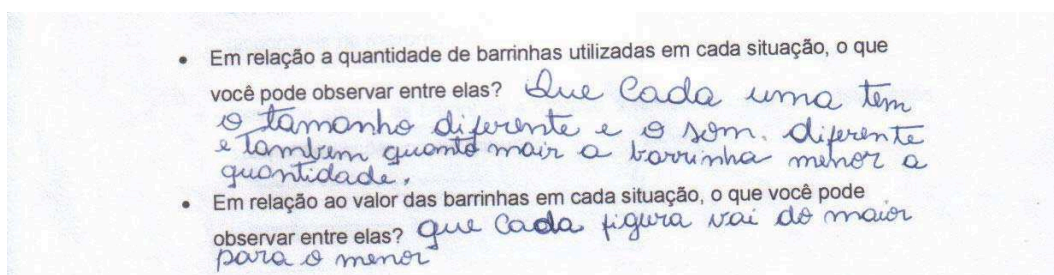 • Em relação a quantidade de barrinhas utilizadas em cada situação, o que
você pode observar entre elas? Que Cada uma tem
o tamanho diferente e o som. diferente
e tambem quanto mair a barrinha menor a
quantidade.
• Em relação ao valor das barrinhas em cada situação, o que você pode
observar entre elas? que Cada figura vai do maior
para o menor